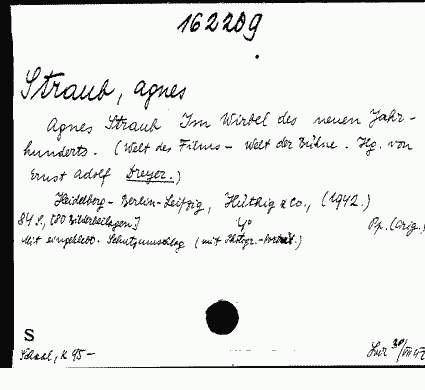 162209
Straub, Agnes
Agnes Straub Im Wirbel des neuen Jahr-
hunderts. (Welt des Films - Welt der Bühne. Hg. von
Ernst Adolf Dreyer.)
Heidelberg - Berlin-Leipzig, Hüthig & Co., (1942.)
84 S., [20 Bilderbeilagen] 4° Pp. (Orig.)
Mit eingeklebt. Schutzumschlag (mit Photogr.-Porträt.)
S
Schaal, K 95-